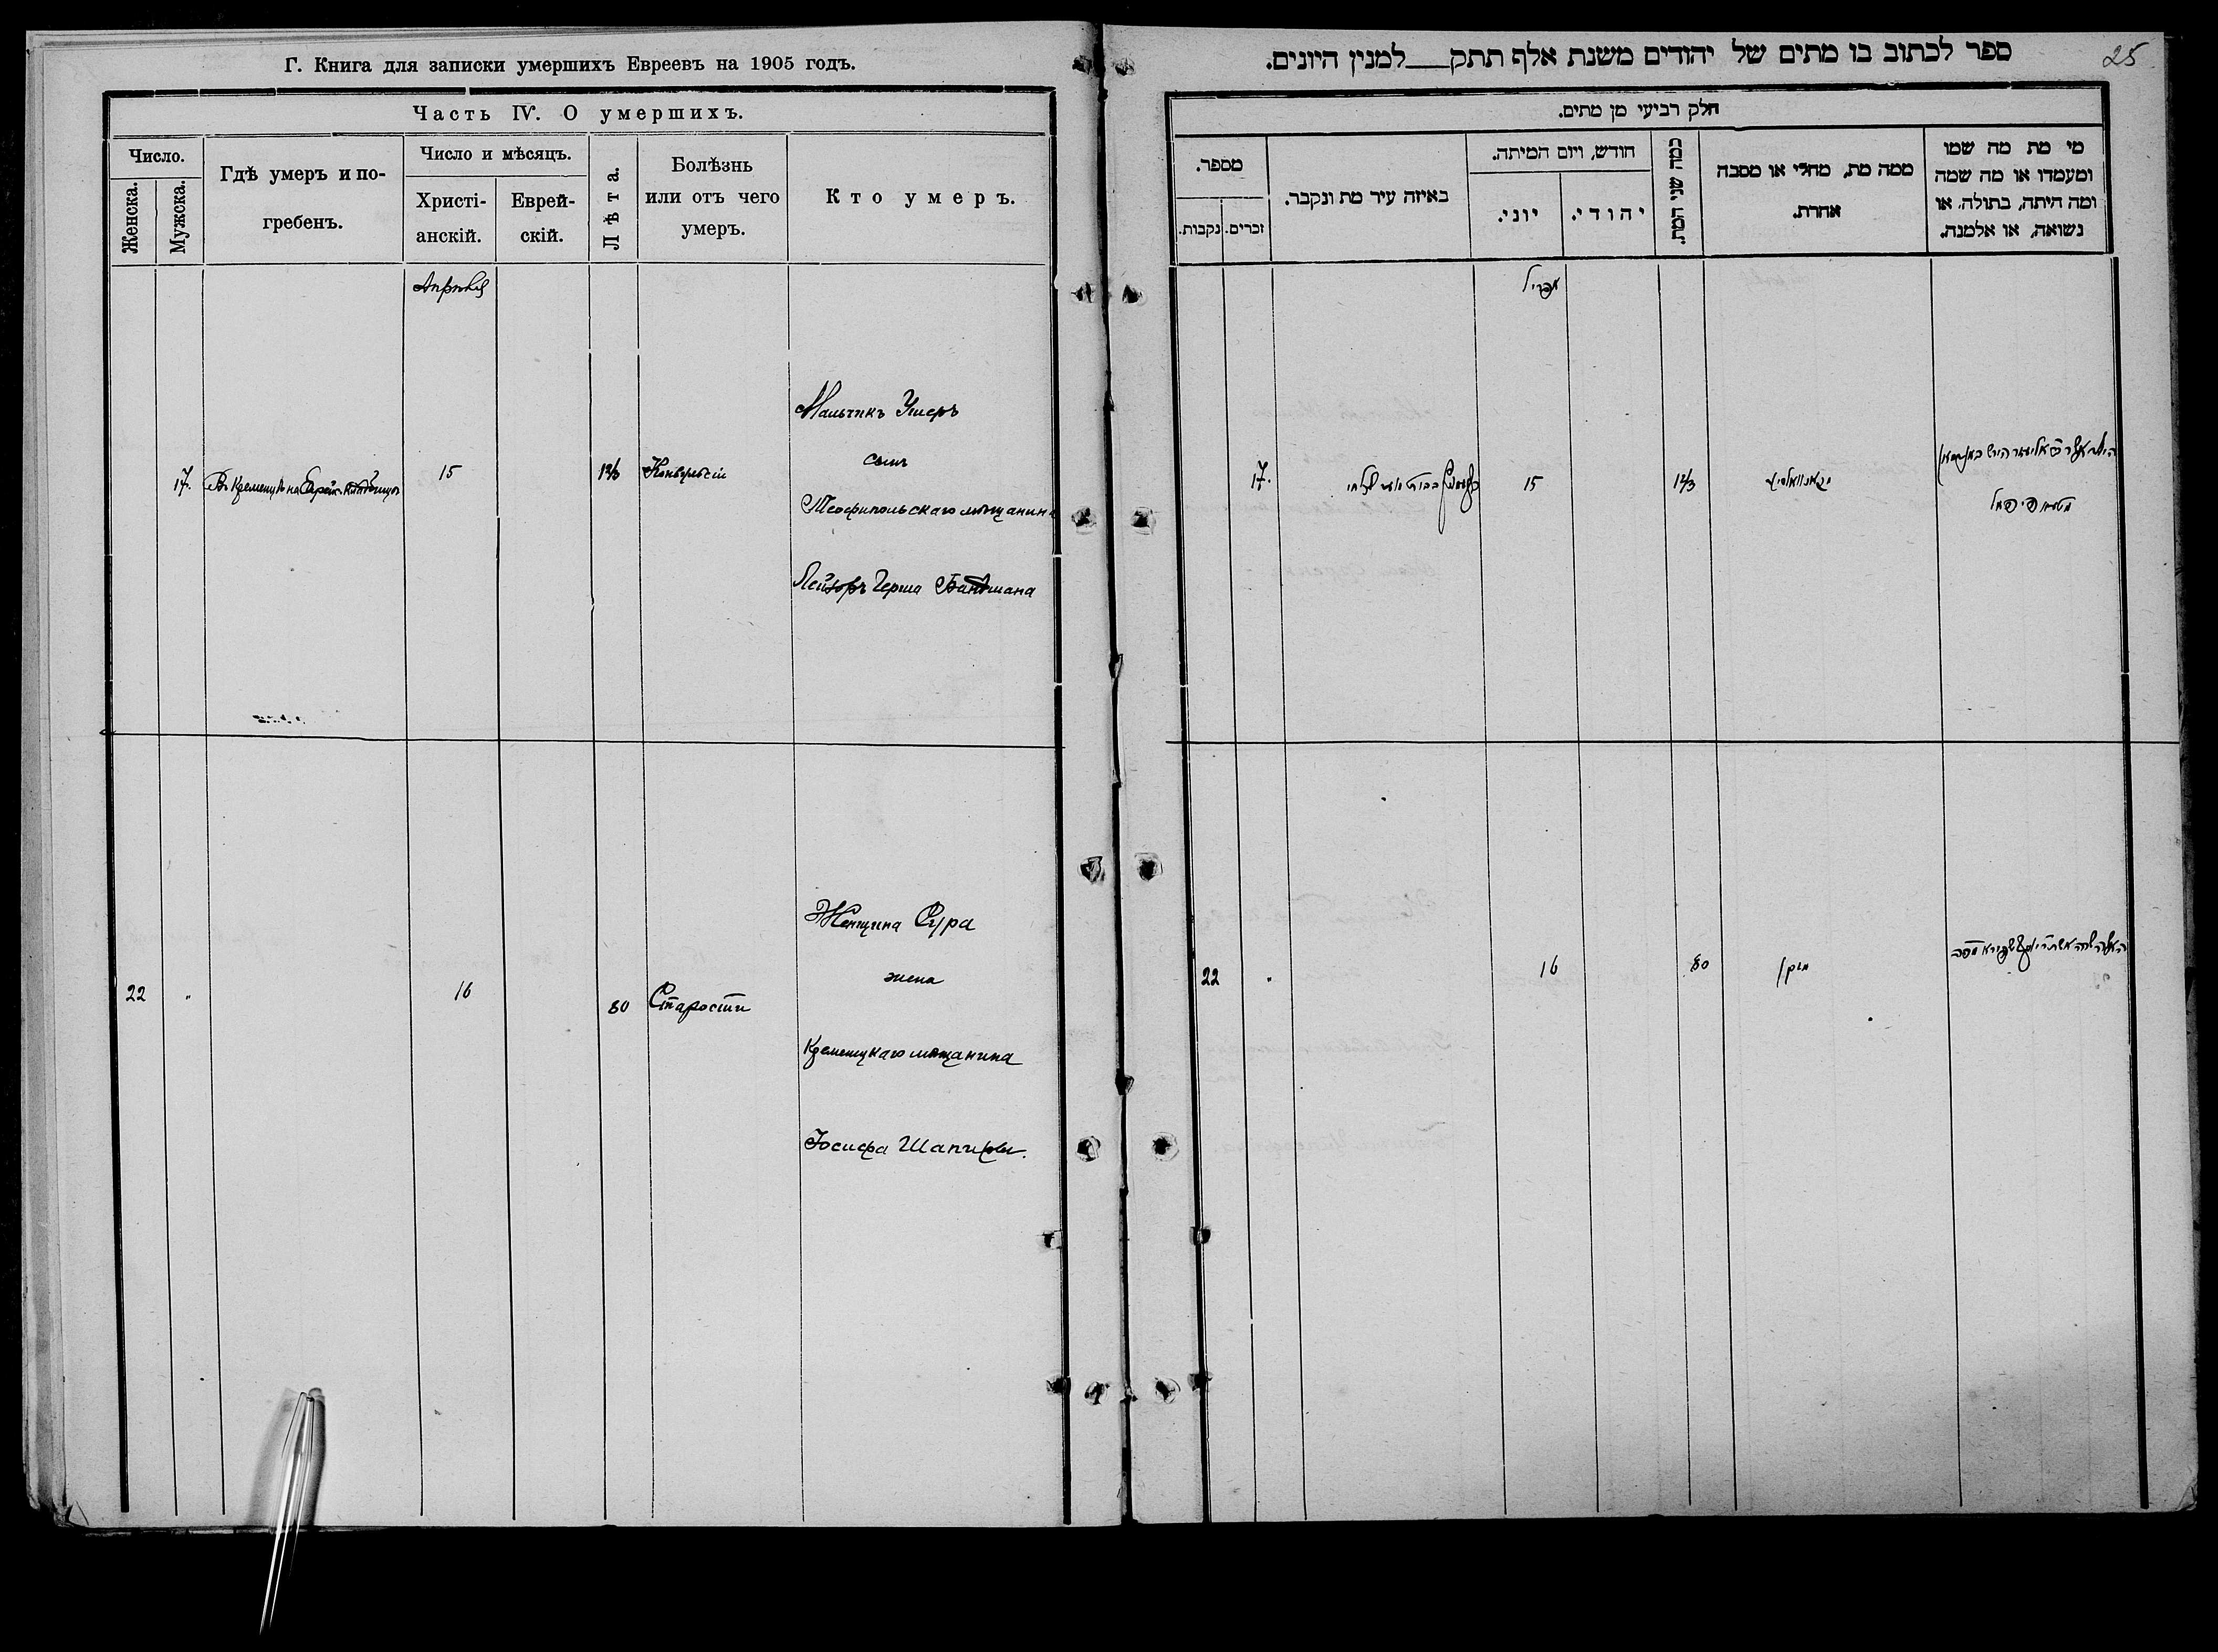 Г. Книга для записки умершихъ Евреевъ на 1905 годъ.
Часть IV. О умершихъ.
Число.
Женска.
Мужска.
Гдѣ умеръ и по-
гребенъ.
Число и мѣсяцъ.
Христі-
анскій.
Еврей-
скій.
Лѣта.
Болѣзнь
или отъ чего
умеръ.
Кто умеръ.
Апрѣль
17.
Въ Кременцѣ на Еврейс. кладбищѣ
15
1 2/3
Конвульсіи
Мальчикъ Ушеръ
сынъ
Теофипольскаго мѣщанина
Лейзоръ Герша Бантмана
22
"
16
80
Старости
Женщина Сура
жена
Кременецкаго мѣщанина
Іосифа Шапиры.
25
ספר לכתוב בו מתים של יהודים משנת אלף תתק למנין היונים.
חלק רביעי מן מתים.
מספר.
נקבות.
זכרים.
באיזה עיר מת ונקבר.
חודש, ויום המיתה.
יוני.
יהודי.
כמה שני המת.
ממה מת, מחלי או מסבה
אחרת.
מי מת מה שמו
ומעמדו או מה שמה
ומה היתה, בתולה, או
נשואה, או אלמנה.
אפריל
17.
15
1 2/3
22
"
16
80
זקן